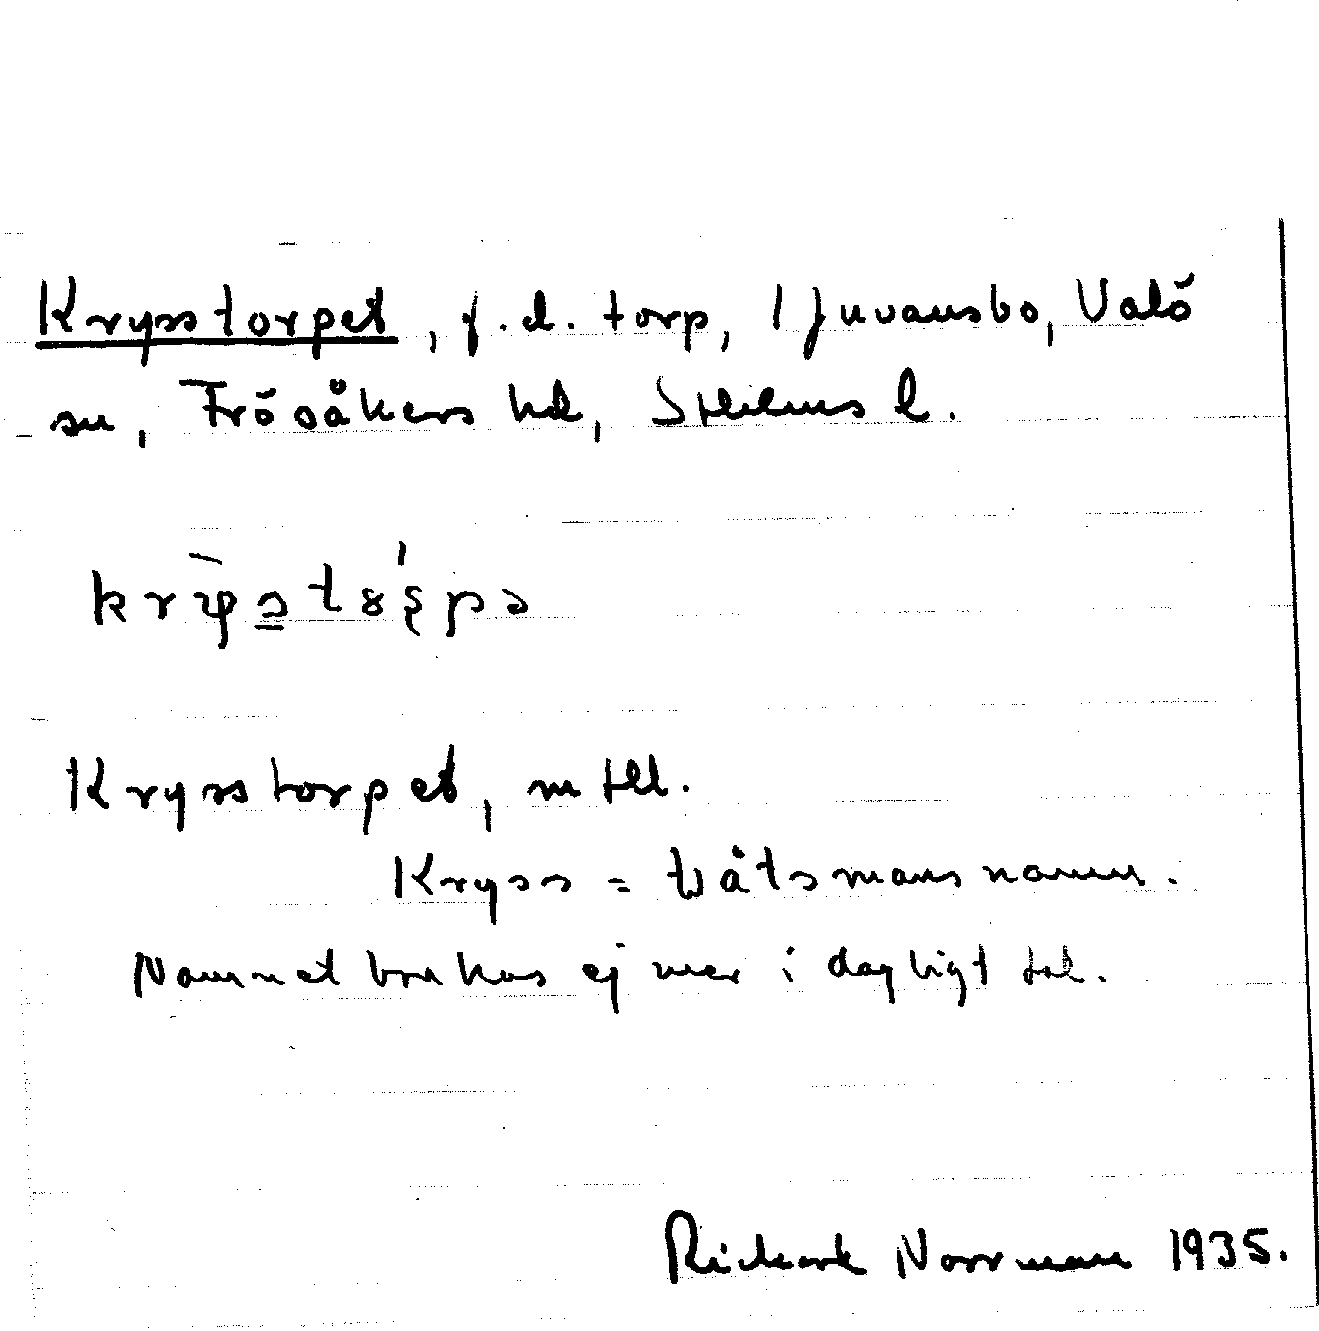 Krysstorpet, f.d. torp, Ljuvansbo, Valö
sn, Frösåkers hd, Sthlms l.
Krysstorpet, mtll.
Kryss = båtsmansnamn.
Namnet brukas ej mer i dagligt tal.
Rickard Norrman 1935.